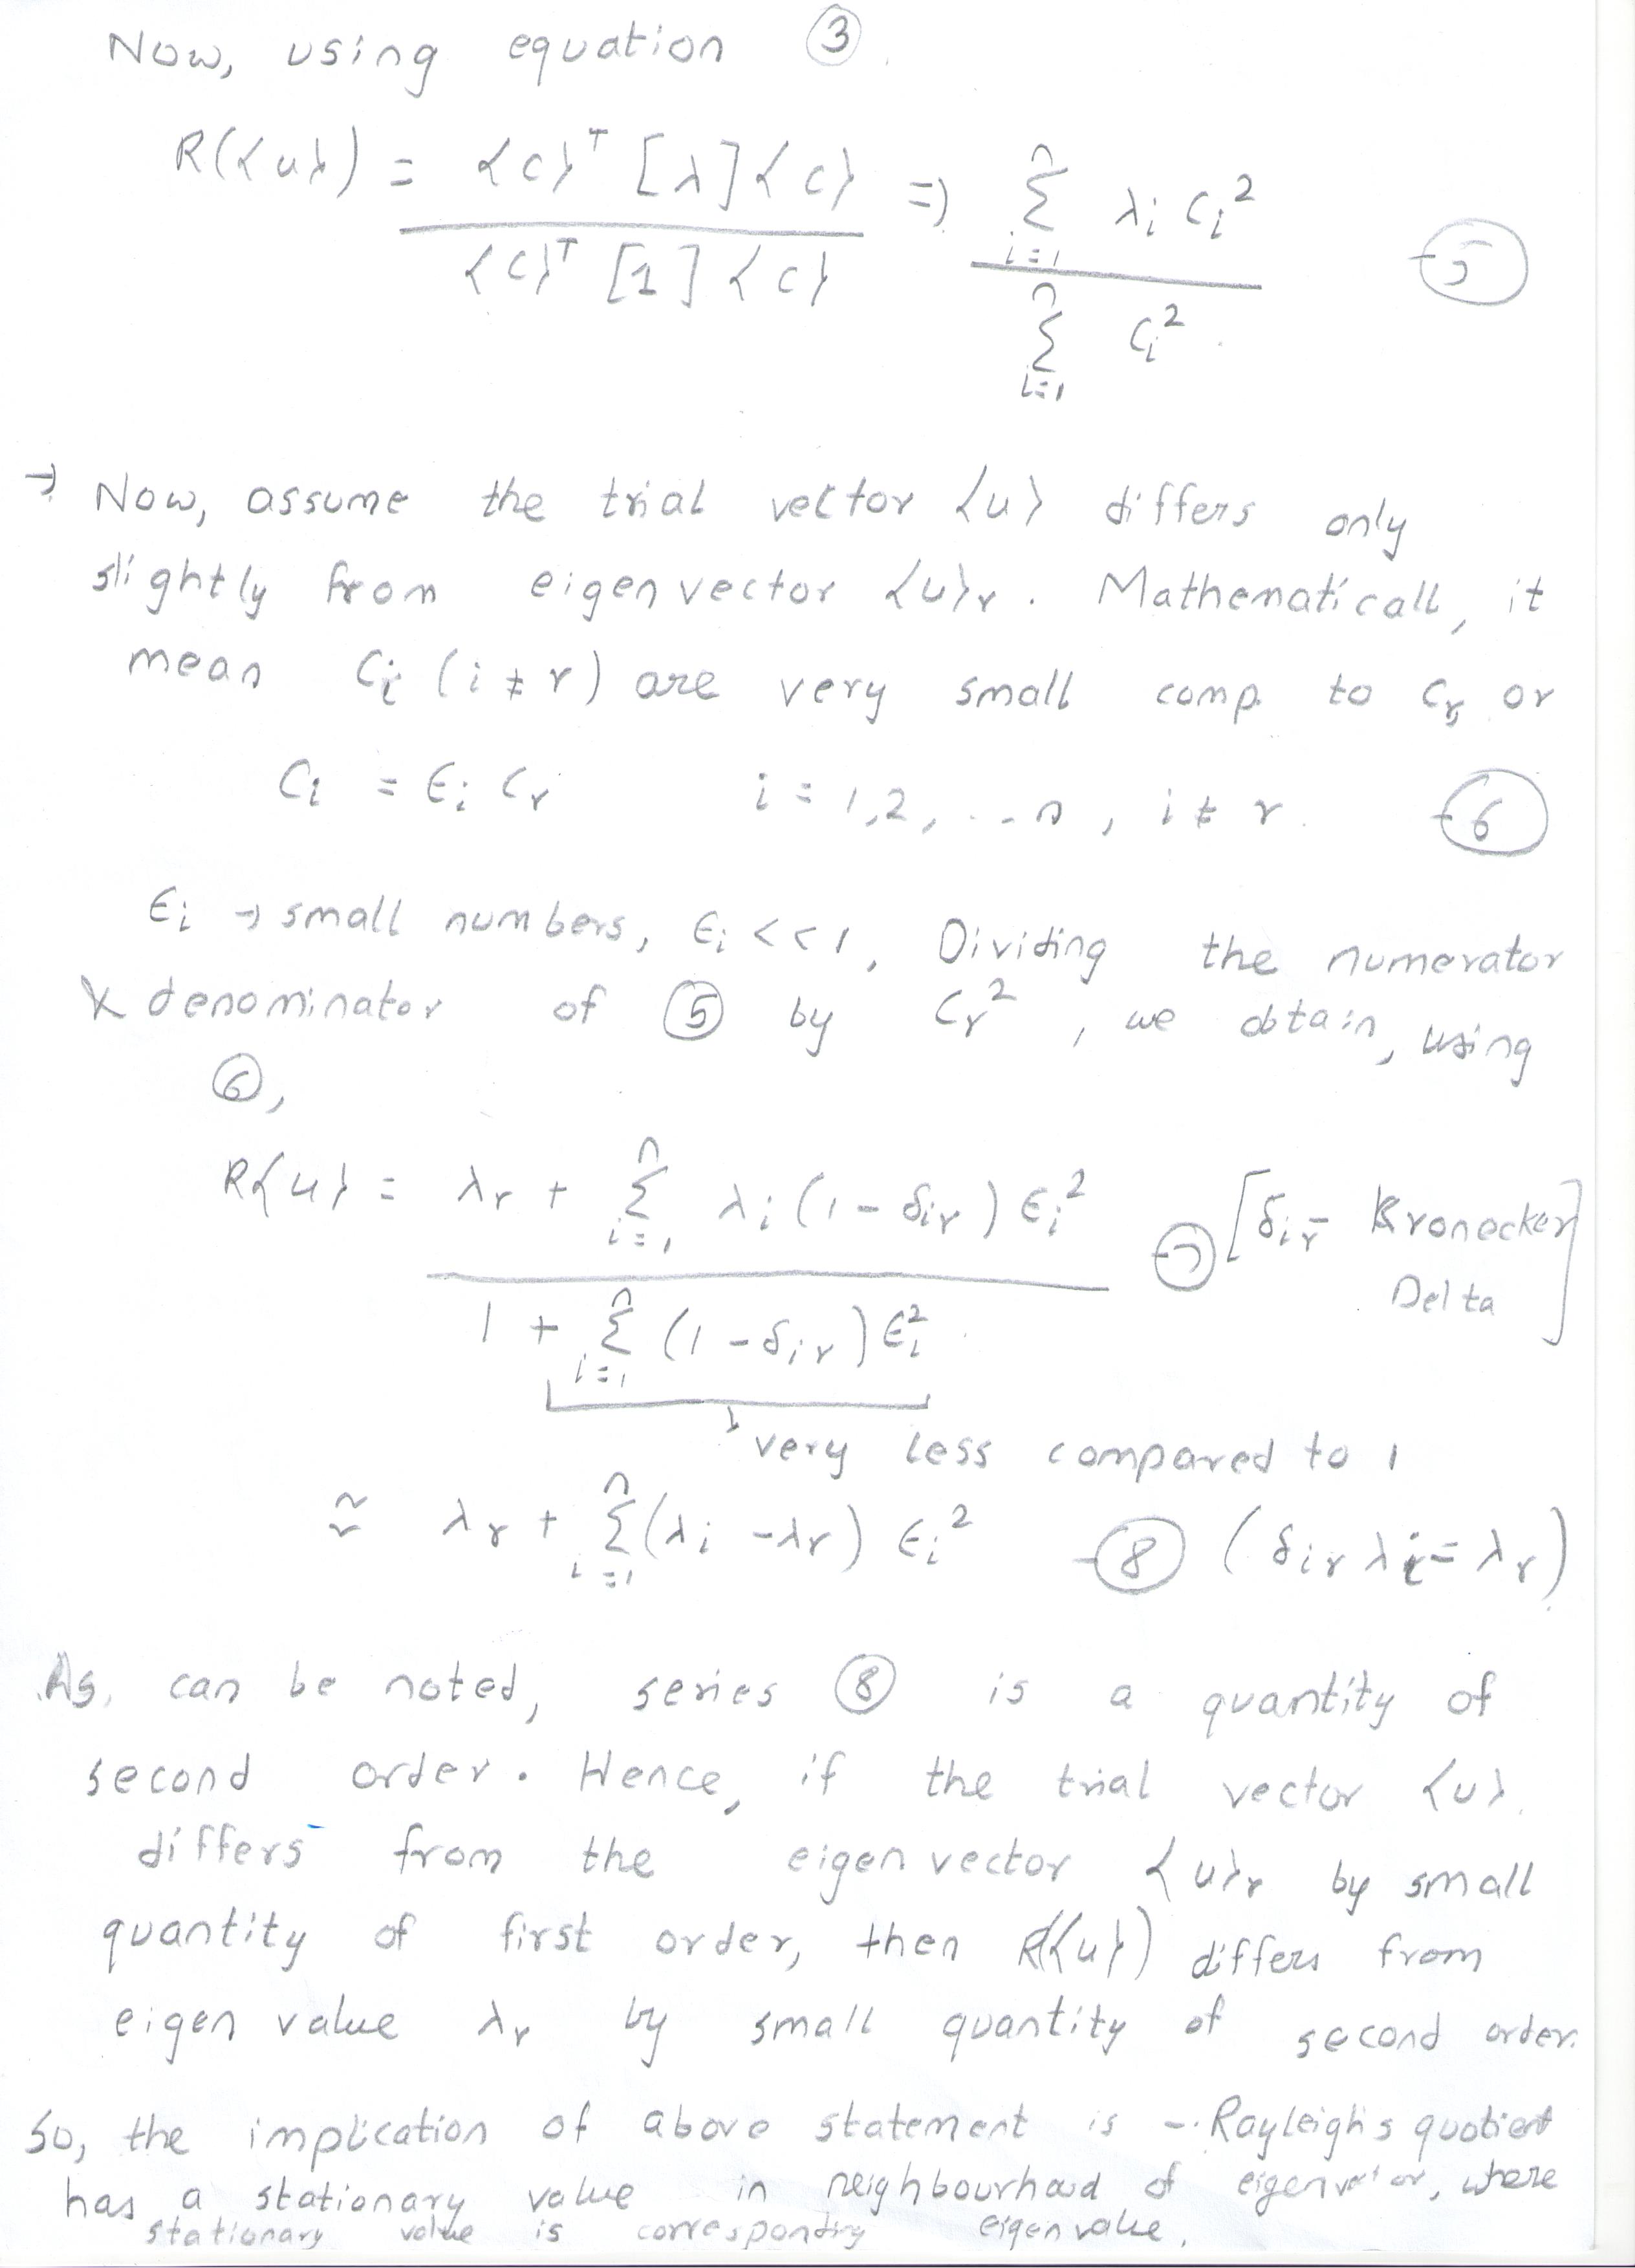 Now, using equation ③.
R({u}) = {c}ᵀ [λ] {c} / {c}ᵀ [1] {c} => Σ_{i=1}^{n} λi Ci² / Σ_{i=1}^{n} Ci² -⑤
→ Now, assume the trial vector {u} differs only
slightly from eigen vector {u}r. Mathematicall, it
mean Ci (i ≠ r) are very small comp. to Cr, or
Ci = Ei Cr i = 1,2, ... n, i ≠ r. -⑥
Ei → small numbers, Ei << 1, Dividing the numerator
& denominator of ⑤ by Cr², we obtain, using
⑥,
R{u} = λr + Σ_{i=1}^{n} λi (1 - δir) Ei² / 1 + Σ_{i=1}^{n} (1 - δir) Ei² -⑦ [δir - Kronecker
Delta]
very less compared to 1
≈ λr + Σ_{i=1}^{n} (λi - λr) Ei² -⑧ (δir λi = λr)
As, can be noted, series ⑧ is a quantity of
second order. Hence, if the trial vector {u}
differs from the eigen vector {u}r by small
quantity of first order, then R({u}) differs from
eigen value λr by small quantity of second order.
So, the implication of above statement is - Rayleigh's quotient
has a stationary value in neighbourhood of eigenvector, where
stationary value is corresponding eigenvalue.